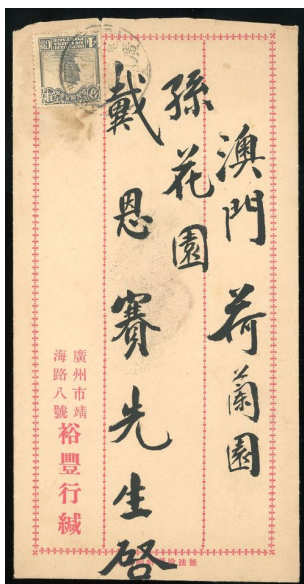 澳門荷蘭園
孫花園
戴恩賽先生啓
廣州市靖
海路八號
裕豐行緘